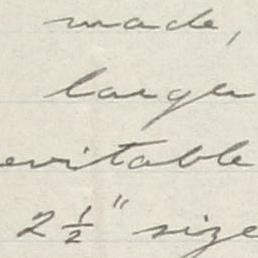 made,
larger
evitable
2½" size